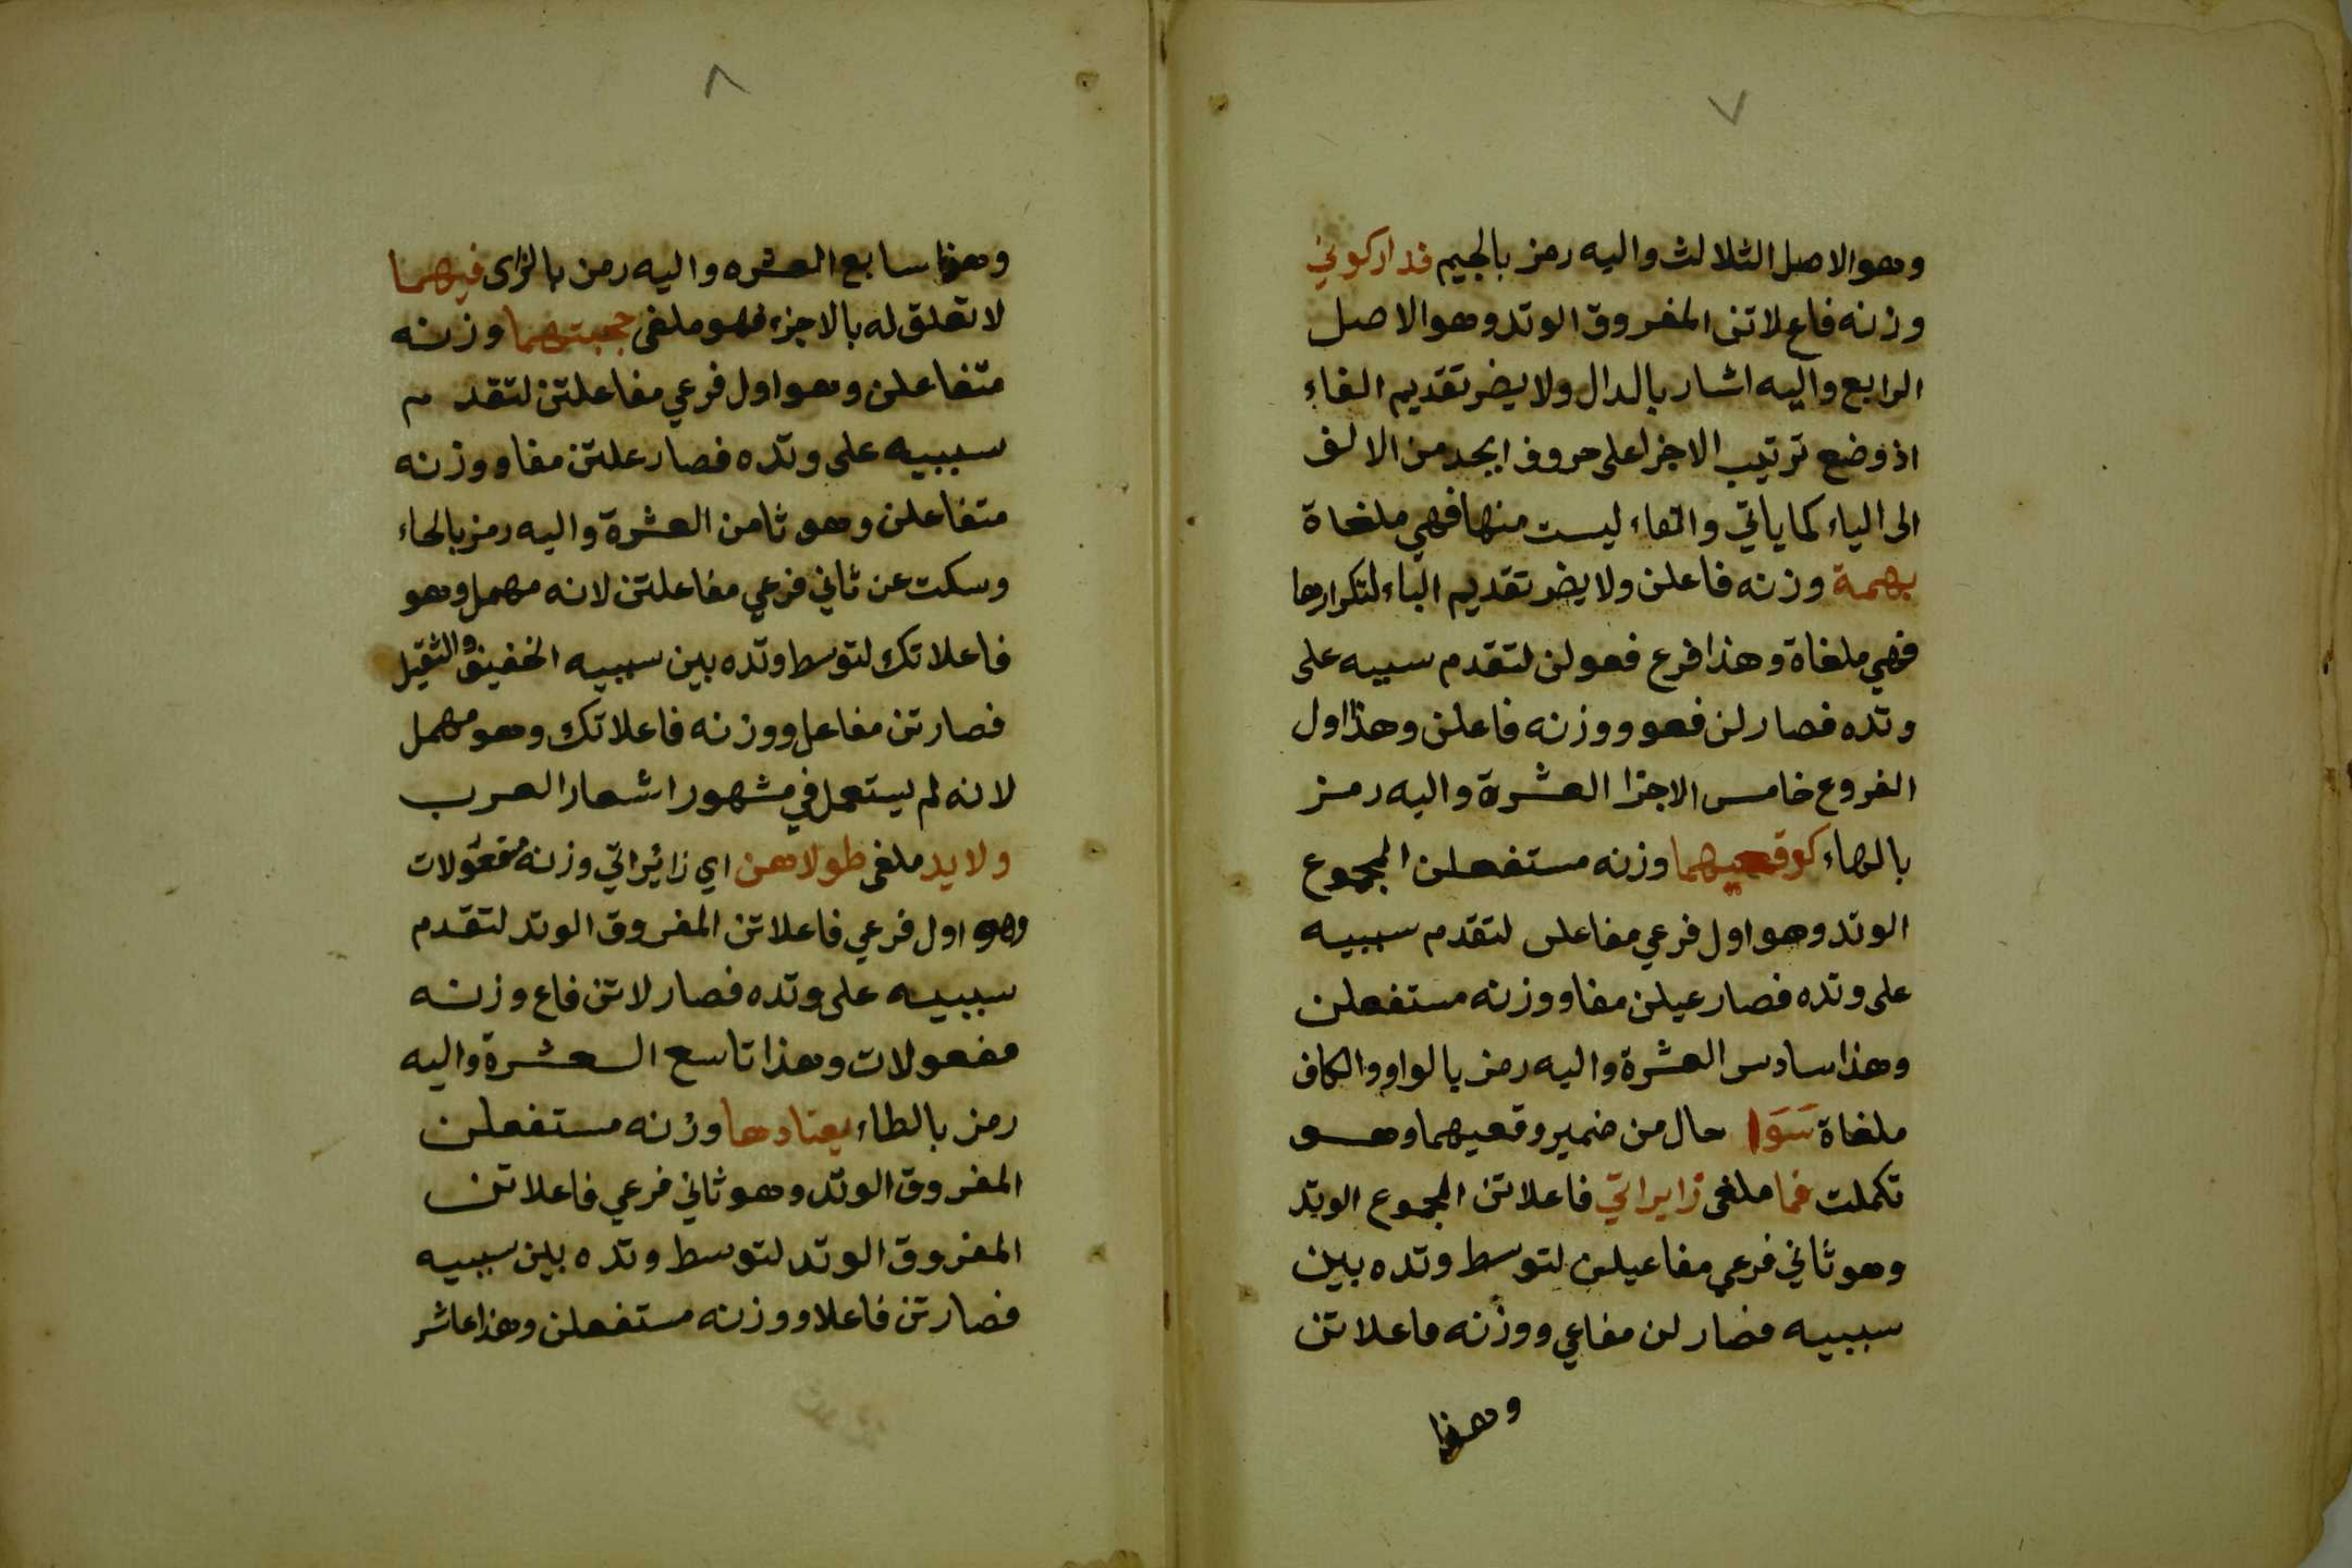 ٧
وهو الاصل الثلالث واليه رمز بالجيم فداركوني
وزنه فاع لاتن المفروق الوتد وهو الاصل
الرابع واليه اشار بالدال ولا يضر تقديم الفاء
اذ وضع ترتيب الاجزا على حروف ابجد من الالف
الى الياء كما ياتي والفاء ليست منها فهي ملغاة
بهمة وزنه فاعلن ولا يضر تقديم الباء لتكرارها
فهي ملغاة وهذا فرع فعولن لتقدم سببه على
وتده فصار لن فعو ووزنه فاعلن وهذا اول
الفروع خامس الاجزا العشرة واليه رمز
بالهاء كوقعيهما وزنه مستفعلن المجموع
الوتد وهو اول فرعي مفاعلن لتقدم سببيه
على وتده فصار عيلن مفا ووزنه مستفعلن
وهذا سادس العشرة واليه رمز بالواو والكاف
ملغاة سَوَا حال من ضمير وقعيهما وهو
تكملت فما ملغى زايراتي فاعلاتن المجموع الوتد
وهو ثاني فرعي مفاعيلن لتوسط وتده بين
سببيه فصار لن مفاعي ووزنه فاعلاتن
وهذا
٨
وهذا سابع العشره واليه رمز بالزاى فيهما
لا تعلق له بالاجزء فهو ملغى حجبتهما وزنه
متفاعلن وهو اول فرعي مفاعلتن لتقدم
سببيه على وتده فصار علتن مفا ووزنه
متفاعلن وهو ثامن العشرة واليه رمز بالحاء
وسكت عن ثاني فرعي مفاعلتن لانه مهمل وهو
فاعلاتك لتوسط وتده بين سببيه الخفيف والثقيل
فصار تن مفاعل ووزنه فاعلاتك وهو مهمل
لانه لم يستعمل في مشهور اشعار العرب
ولا يد ملغى طولاهن اي زائراتي وزنه مفعولات
وهو اول فرعي فاعلاتن المفروق الوتد لتقدم
سببيه على وتده فصار لاتن فاع وزنه
مفعولات وهذا تاسع العشرة واليه
رمز بالطاء يعتادها وزنه مستفعلن
المفروق الوتد وهو ثاني فرعي فاعلاتن
المفروق الوتد لتوسط وتده بين سببيه
فصار تن فاعلا ووزنه مستفعلن وهذا عاشر